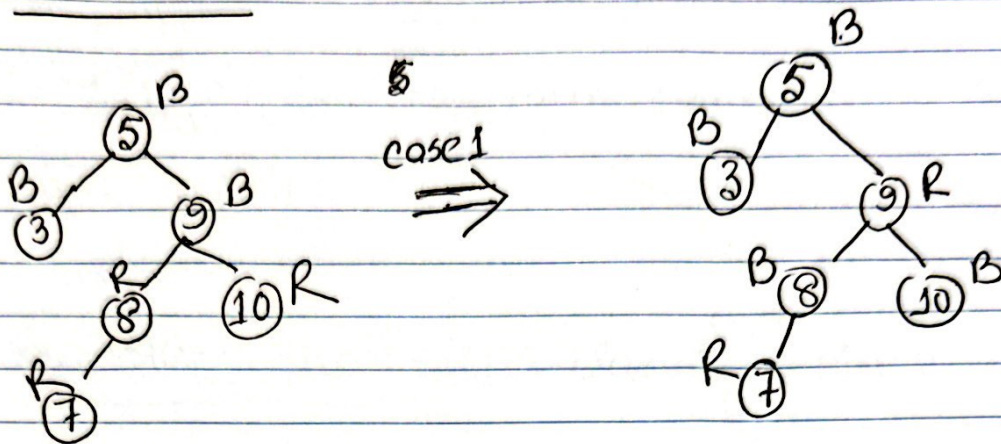 B
5
B
3
B
9
R
8
10 R
R
7
case 1
B
5
B
3
9 R
B
8
10 B
R
7